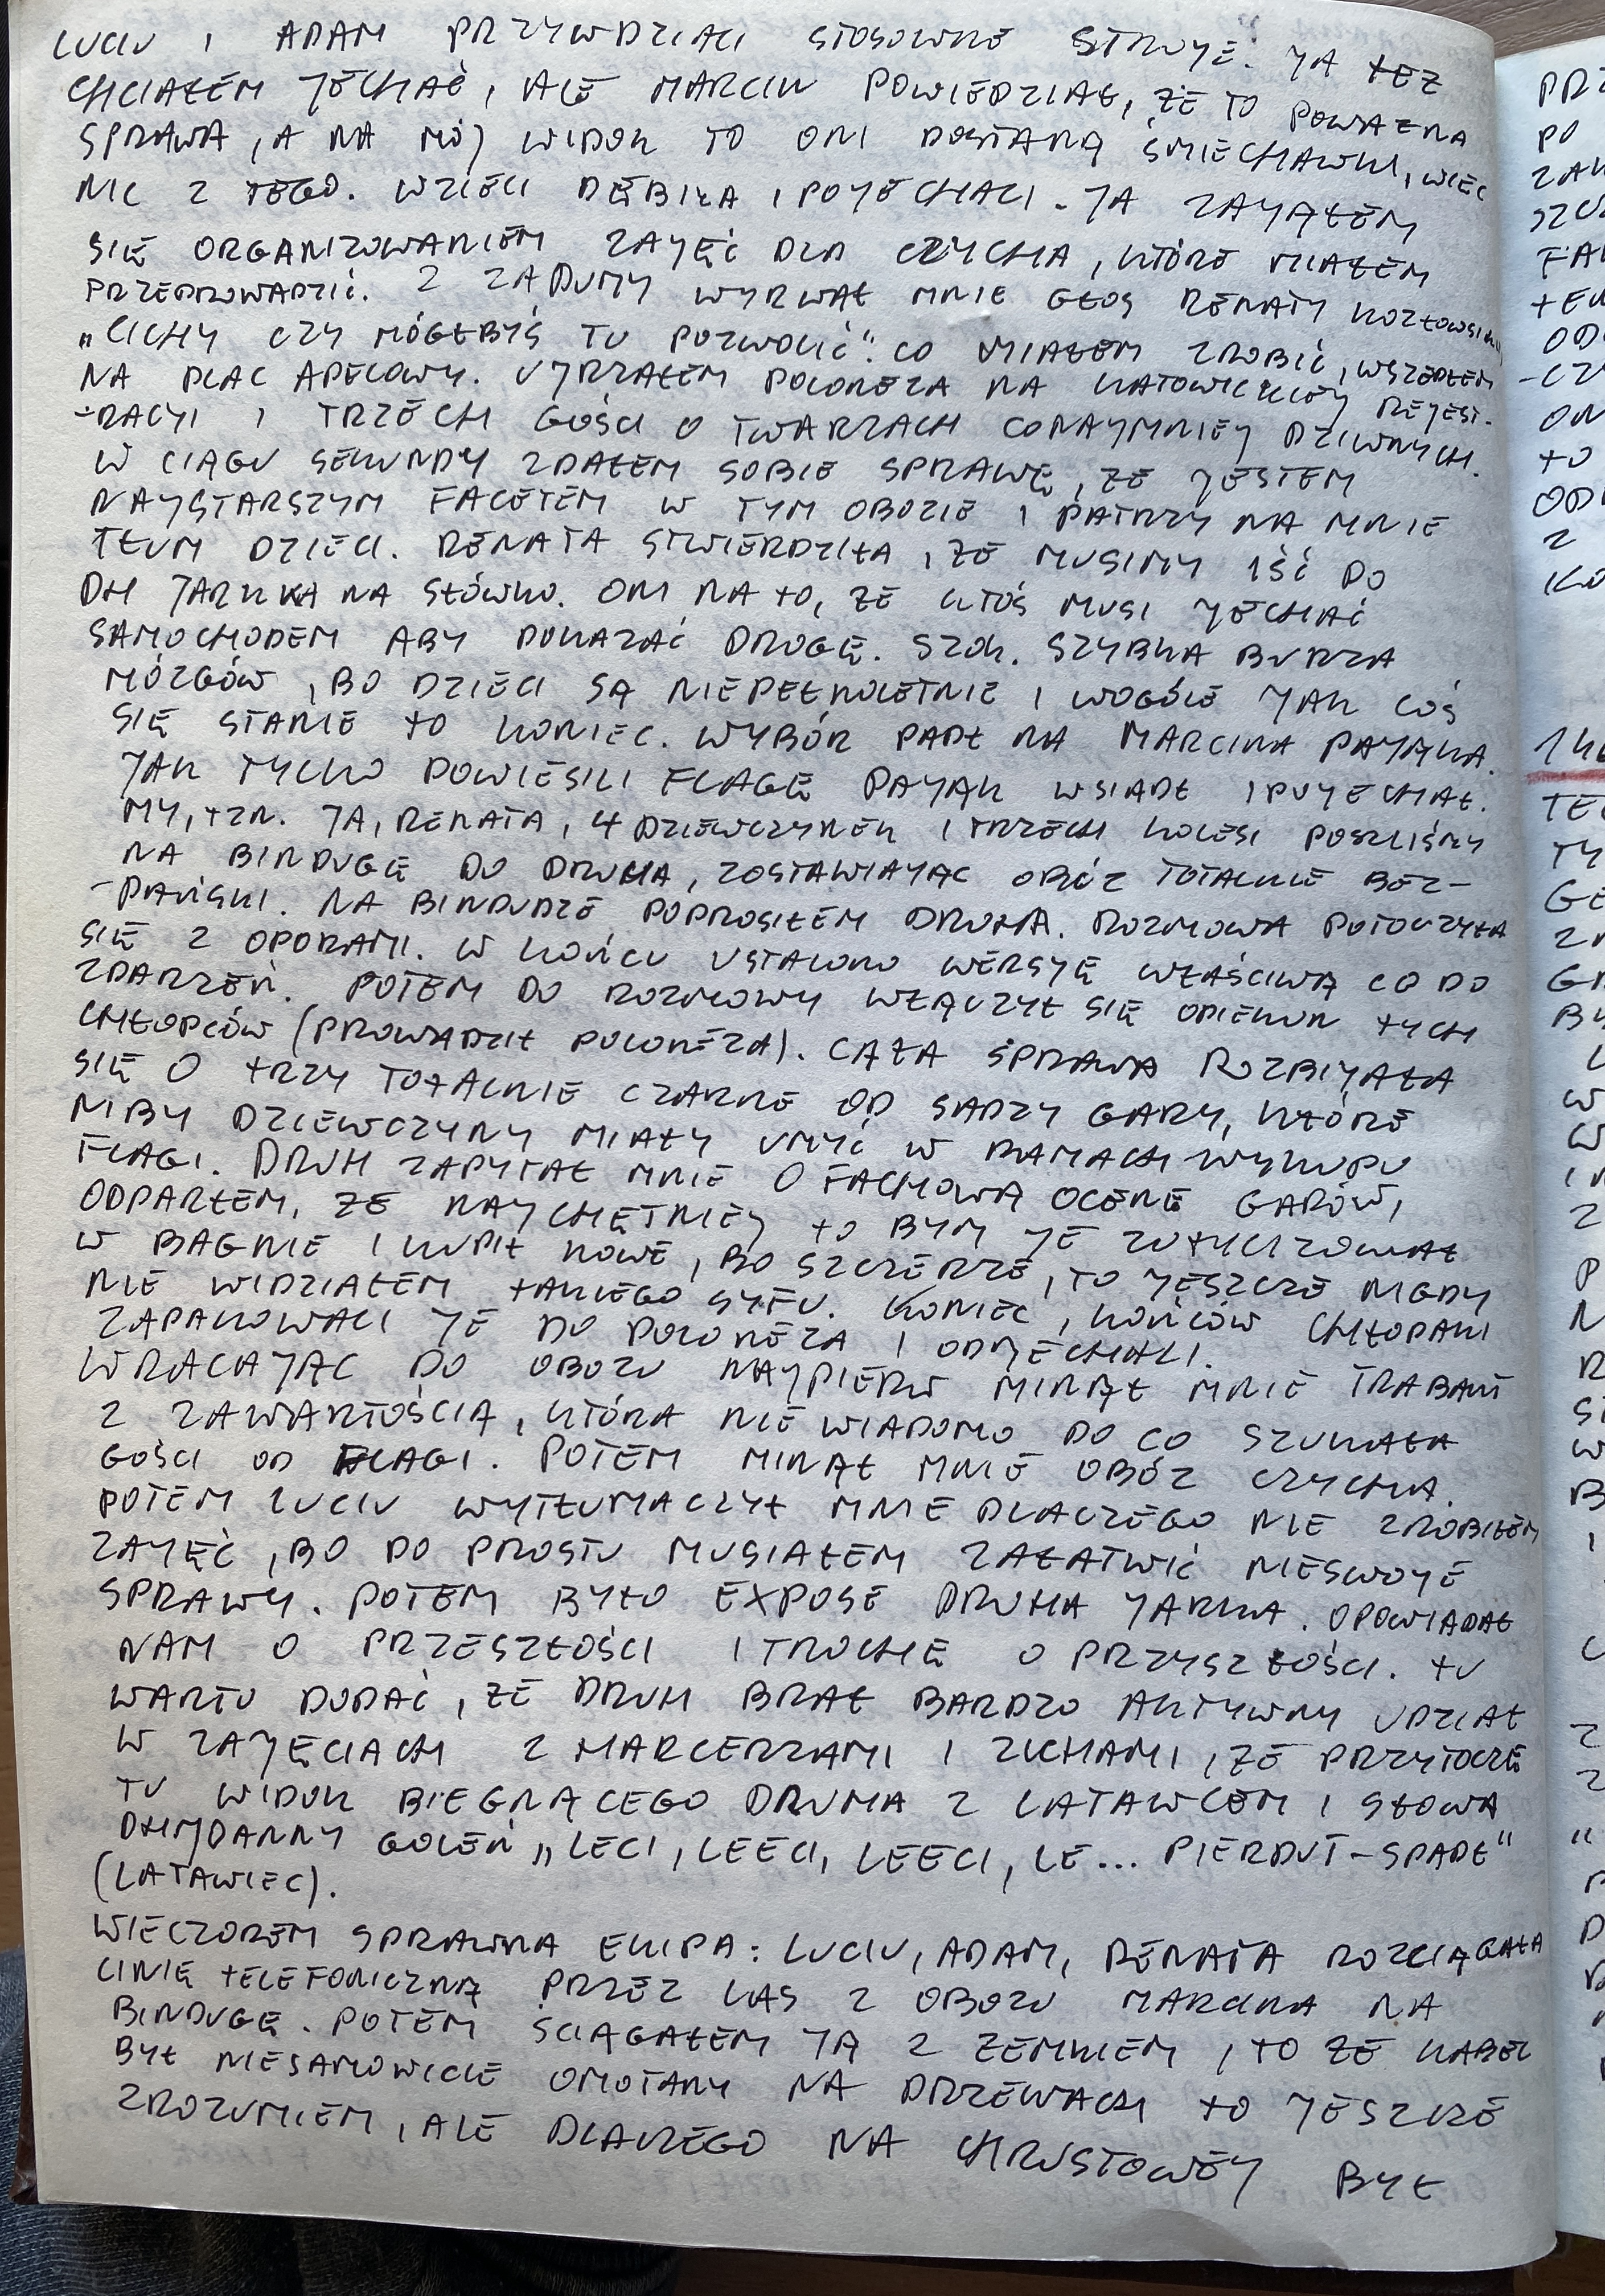 LUCIU I ADAM PRZYWDZIALI STOSOWNE STROJE. JA TEŻ
CHCIAŁEM JECHAĆ, ALE MARCIN POWIEDZIAŁ, ŻE TO POWAŻNA
SPRAWA, A NA MÓJ WIDOK TO ONI DOSTANĄ ŚMIECHAWKI, WIĘC
NIC Z TEGO. WZIĘLI DĘBIŁA I POJECHALI. JA ZAJĄŁEM
SIĘ ORGANIZOWANIEM ZAJĘĆ DLA CZYCHA, KTÓRE MIAŁEM
PRZEPROWADZIĆ. Z ZADUMY WYRWAŁ MNIE GŁOS RENATY KOZŁOWSKIEJ
„CICHY CZY MÓGŁBYŚ TU POZWOLIĆ". CO MIAŁEM ZROBIĆ, WSZEDŁEM
NA PLAC APELOWY. UJRZAŁEM POLONEZA NA KATOWICKIEJ REJEST-
-RACJI I TRZECH GOŚCI O TWARZACH CONAJMNIEJ DZIWNYCH.
W CIĄGU SEKUNDY ZDAŁEM SOBIE SPRAWĘ, ŻE JESTEM
NAJSTARSZYM FACETEM W TYM OBOZIE I PATRZY NA MNIE
TŁUM DZIECI. RENATA STWIERDZIŁA, ŻE MUSIMY IŚĆ DO
DH JARKA NA SŁÓWKO. ONI NA TO, ŻE KTOŚ MUSI JECHAĆ
SAMOCHODEM ABY POKAZAĆ DROGĘ. SZOK. SZYBKA BURZA
MÓZGÓW, BO DZIECI SĄ NIEPEŁNOLETNIE I WOGÓLE JAK COŚ
SIĘ STANIE TO KONIEC. WYBÓR PADŁ NA MARCINA PAJĄKA.
JAK TYLKO POWIESILI FLAGĘ PAJĄK WSIADŁ I POJECHAŁ.
MY, TZN. JA, RENATA, 4 DZIEWCZYNEK I TRZECH KOLESI POSZLIŚMY
NA BINDUGĘ DO DRUHA, ZOSTAWIAJĄC OBÓZ TOTALNIE BEZ-
-PAŃSKI. NA BINDUDZE POPROSIŁEM DRUHA. ROZMOWA POTOCZYŁA
SIĘ Z OPORAMI. W KOŃCU USTALONO WERSJĘ WŁAŚCIWĄ CO DO
ZDARZEŃ. POTEM DO ROZMOWY WŁĄCZYŁ SIĘ OPIEKUN TYCH
CHŁOPCÓW (PROWADZIŁ POLONEZA). CAŁA SPRAWA ROZBIJAŁA
SIĘ O TRZY TOTALNIE CZARNE OD SADZY GARY, KTÓRE
NIBY DZIEWCZYNY MIAŁY UMYĆ W RAMACH WYKUPU
FLAGI. DRUH ZAPYTAŁ MNIE O FACHOWĄ OCENĘ GARÓW,
ODPARŁEM, ŻE NAJCHĘTNIEJ TO BYM JE ZUTYLIZOWAŁ
W BAGNIE I KUPIŁ NOWE, BO SZCZERZE, TO JESZCZE NIGDY
NIE WIDZIAŁEM TAKIEGO SYFU. KONIEC, KOŃCÓW CHŁOPAKI
ZAPAKOWALI JE DO POLONEZA I ODJECHALI.
WRACAJĄC DO OBOZU NAJPIERW MINĄŁ MNIE TRABANT
Z ZAWARTOŚCIĄ, KTÓRA NIE WIADOMO DO CO SZUKAŁA
GOŚCI OD FLAGI. POTEM MINĄŁ MNIE OBÓZ CZYCHA.
POTEM LUCIU WYTŁUMACZYŁ MNIE DLACZEGO NIE ZROBIŁEM
ZAJĘĆ, BO PO PROSTU MUSIAŁEM ZAŁATWIĆ NIESWOJE
SPRAWY. POTEM BYŁO EXPOSE DRUHA JARKA. OPOWIADAŁ
NAM O PRZESZŁOŚCI I TROCHĘ O PRZYSZŁOŚCI. TU
WARTO DODAĆ, ŻE DRUH BRAŁ BARDZO AKTYWNY UDZIAŁ
W ZAJĘCIACH Z HARCERZAMI I ZUCHAMI, ŻE PRZYTOCZĘ
TU WIDOK BIEGNĄCEGO DRUHA Z LATAWCEM I SŁOWA
DH JOANNY GOLEŃ „LECI, LEECI, LEECI, LE... PIERDUT-SPADŁ"
(LATAWIEC).
WIECZOREM SPRAWNA EKIPA: LUCIU, ADAM, RENATA ROZCIĄGAŁA
LINIĘ TELEFONICZNĄ PRZEZ LAS Z OBOZU MARCINA NA
BINDUGĘ. POTEM ŚCIĄGAŁEM JĄ Z ZEMKIEM, TO ŻE KABEL
BYŁ NIESAMOWICIE OMOTANY NA DRZEWACH TO JESZCZE
ZROZUMIEM, ALE DLACZEGO NA CHRUSTOWEJ BYŁ